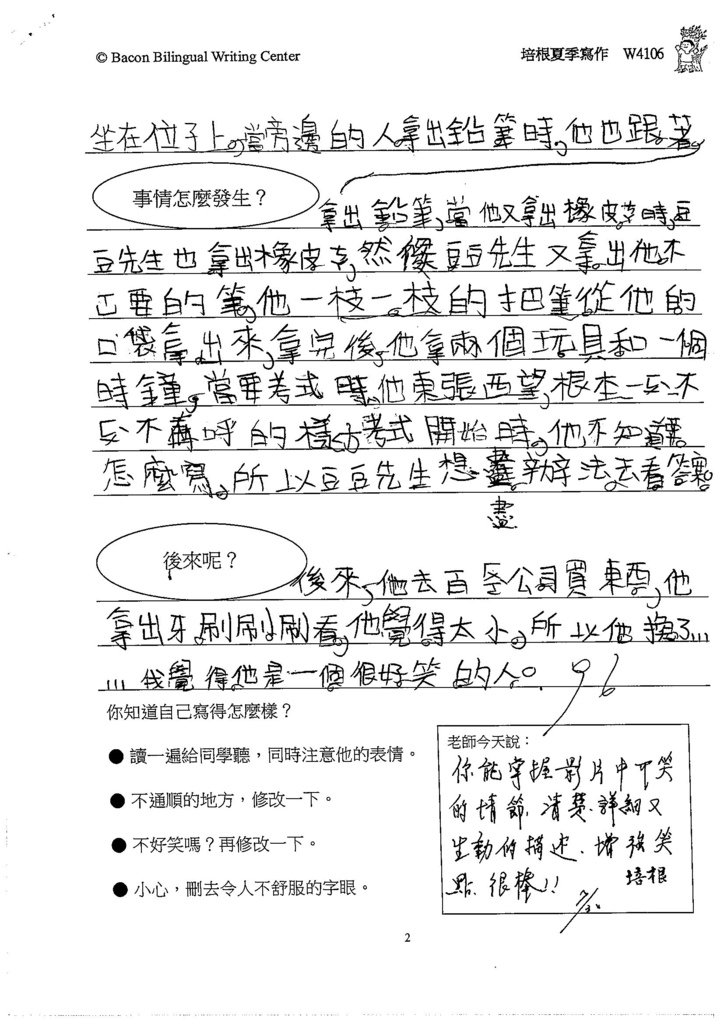 © Bacon Bilingual Writing Center
培根夏季寫作 W4106
坐在位子上,當旁邊的人拿出鉛筆時,他也跟著
事情怎麼發生?
拿出鉛筆,當他又拿出橡皮克時,豆
豆先生也拿出橡皮克,然後豆豆先生又拿出他不
必要的筆,他一枝一枝的把筆從他的
口袋拿出來,拿完後,他拿兩個玩具和一個
時鐘,當要考式時,他東張西望,根本一
的樣
考式開始時,他不知道
怎麼寫,所以豆豆先生想盡辦法去看答案。
盡
後來呢?
後來,他去百
公司買東西,他
拿出牙刷刷刷看,他覺得太小,所以他換了……
……我覺得他是一個很好笑的人。
96
你知道自己寫得怎麼樣?
● 讀一遍給同學聽,同時注意他的表情。
● 不通順的地方,修改一下。
● 不好笑嗎?再修改一下。
● 小心,刪去令人不舒服的字眼。
老師今天說:
你能掌握影片中可笑
的情節,清楚、詳細又
生動的描述、增強笑
點,很棒!!
培根
2